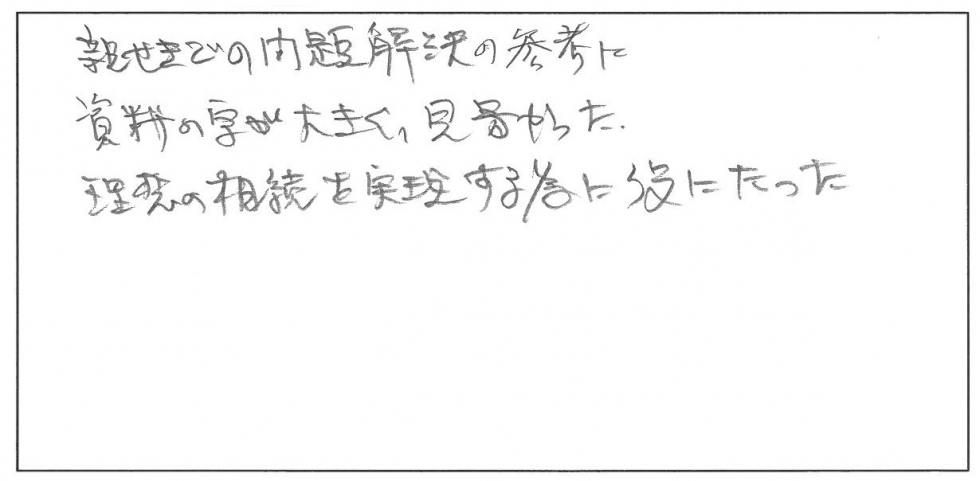 親せきでの問題解決の参考に
資料の字が大きく、見易かった.
理想の相続を実現する為に役にたった